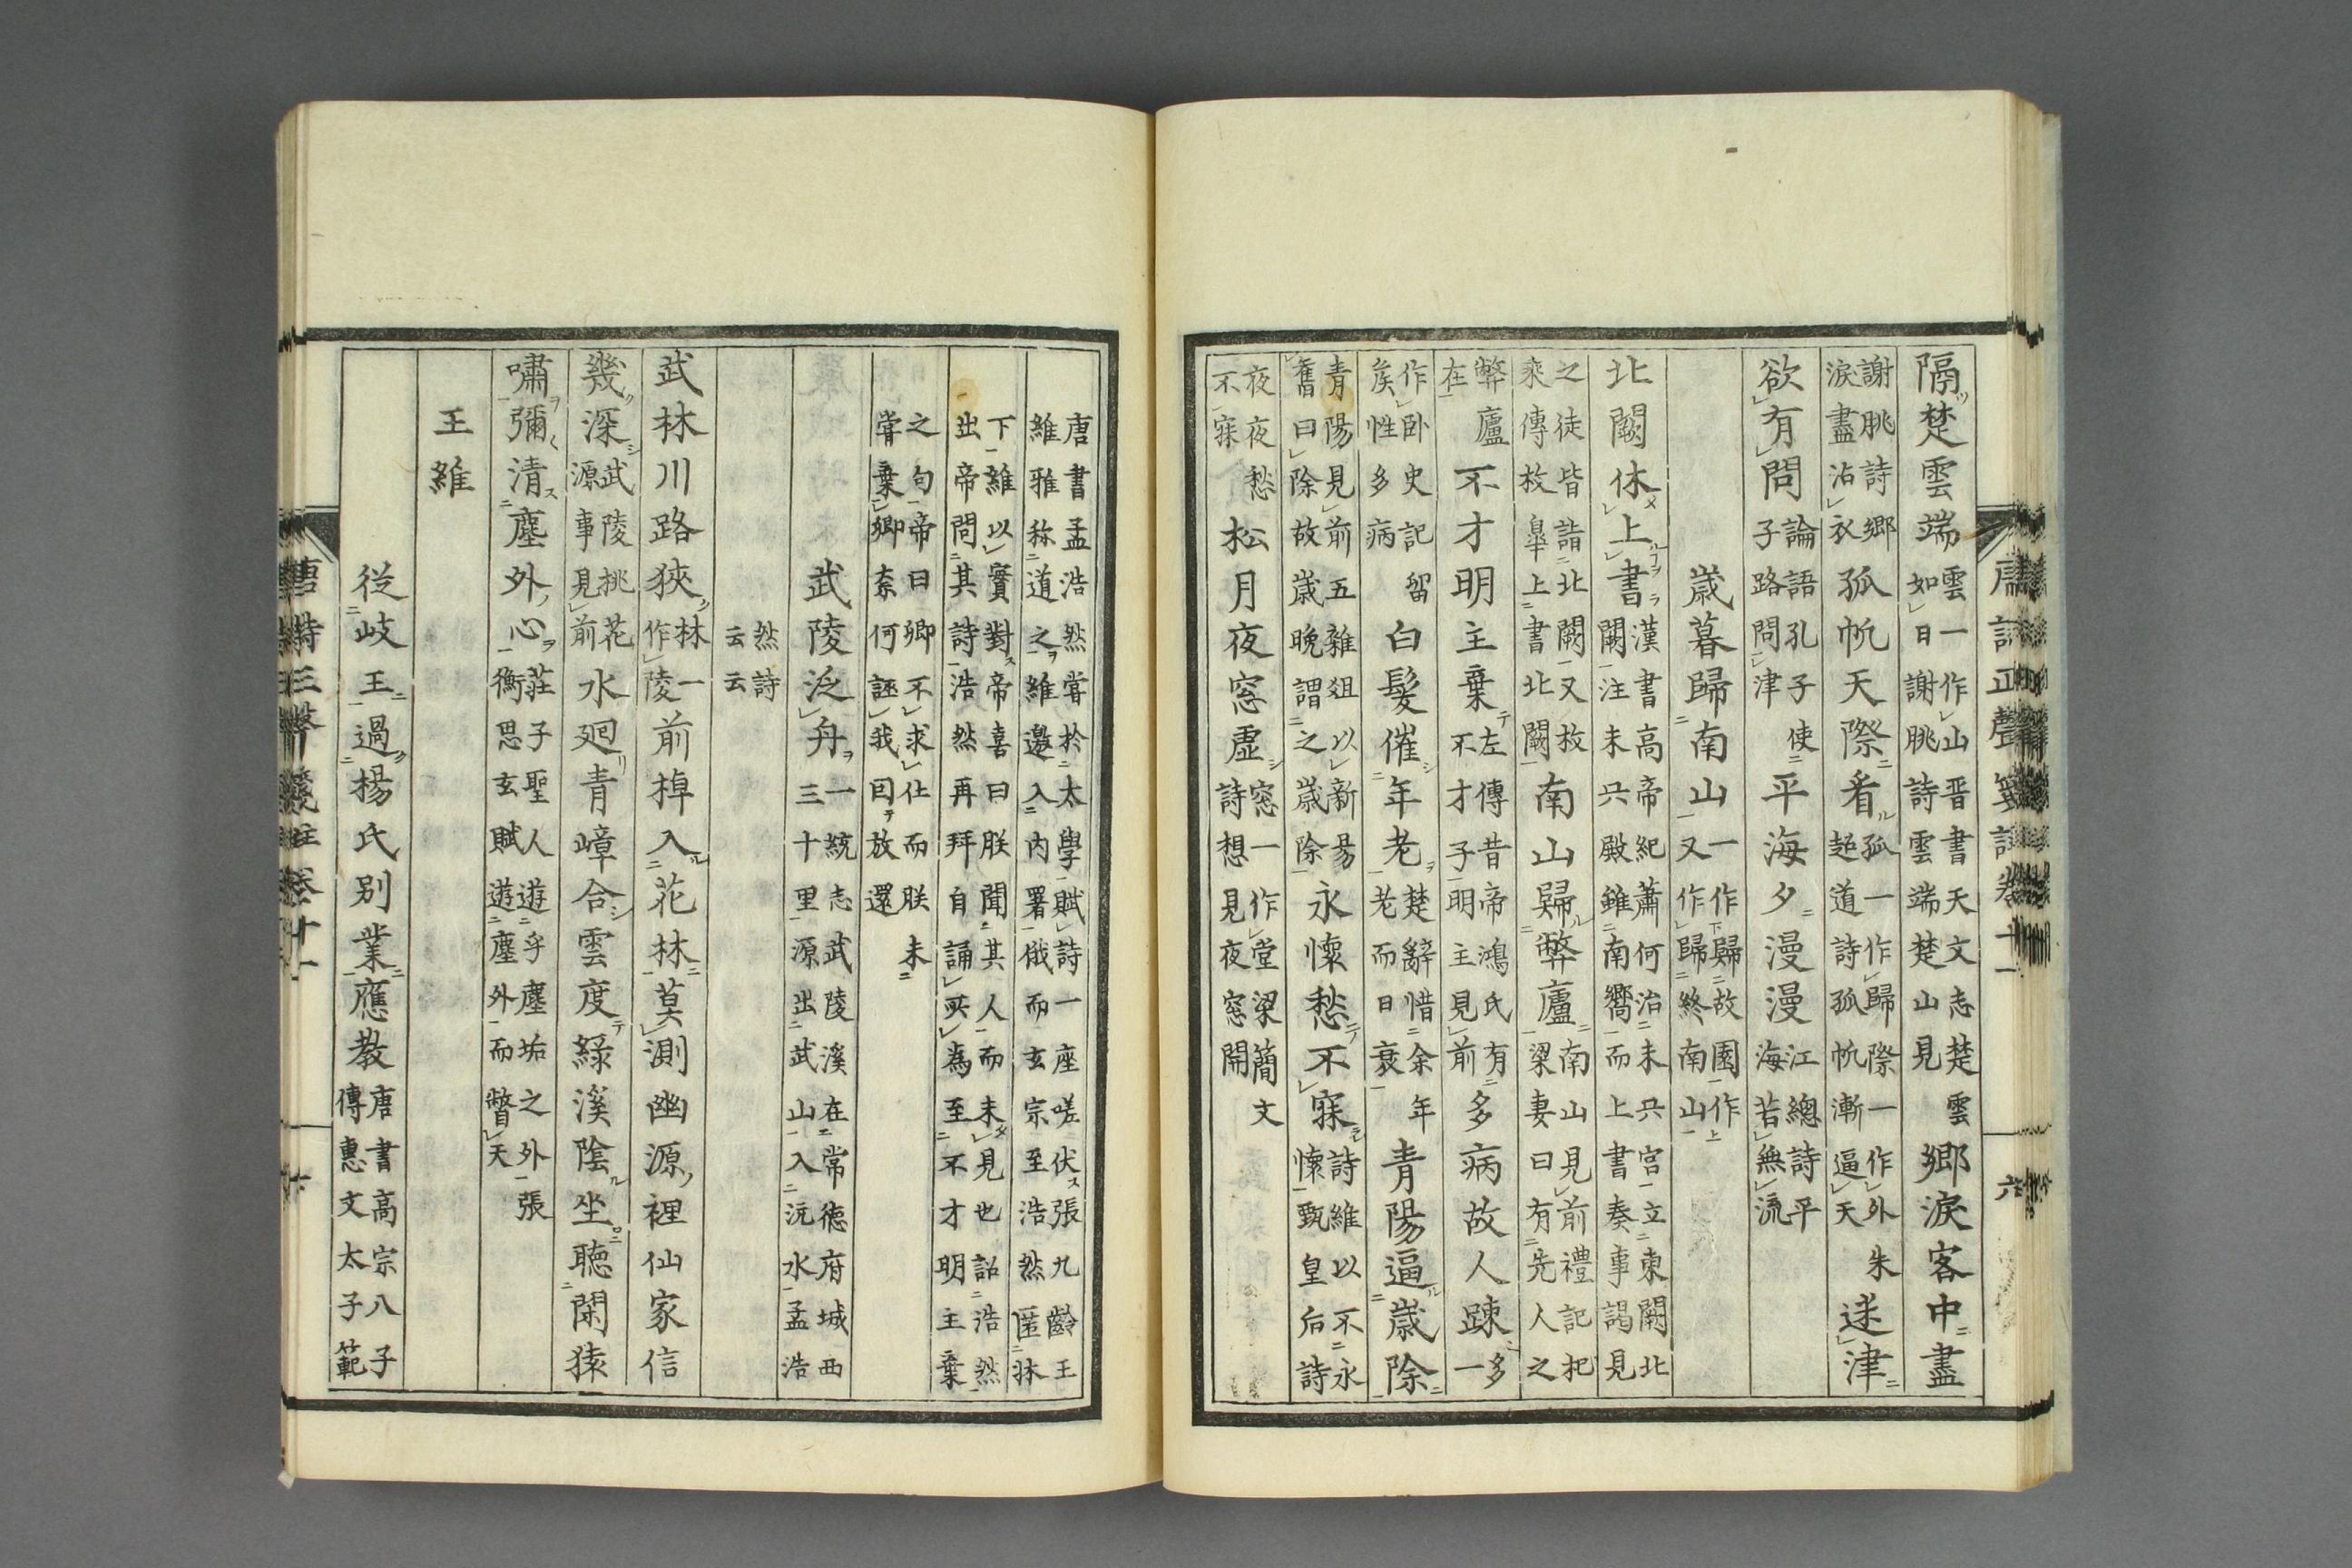 隔楚雲端雲一作山晋書天文志楚雲如日謝朓詩雲端楚山見鄉淚客中盡
謝朓詩鄉淚盡沾衣孤帆天際看孤一作歸際一作外朱超道詩孤帆漸逼天迷津
欲有問論語孔子使子路問津平海夕漫漫江總詩平海若無流
歲暮歸南山一作歸故園作又作歸終南山
北闕休上書漢書高帝紀蕭何治未央宮立東闕北闕注未央殿雖南嚮而上書奏事謁見
之徒皆詣北闕又枚乘傳枚皐上書北闕南山歸弊廬南山見前禮記杞梁妻曰有先人之
弊廬在不才明主棄左傳昔帝鴻氏有不才子明主見前多病故人踈多一
作卧史記留矦性多病白髮催年老楚辭惜余年老而日衰青陽逼歲除
青陽見前五雜俎以新昜舊曰除故歲晚謂之歲除永懷愁不寐詩維以不永懷甄皇后詩
夜夜愁不寐松月夜窓虛窓一作堂梁簡文詩想見夜窓開
唐書孟浩然嘗於太學賦詩一座嗟伏張九齡王維雅称道之維邀入内署俄而玄宗至浩然匿牀
下維以實對帝喜曰朕聞其人而未見也詔浩然出帝問其詩浩然再拜自誦所為至不才明主棄
之句帝曰卿不求仕而朕未嘗棄卿柰何誣我因放還
武陵泛舟一統志武陵溪在常徳府城西三十里源出武山入沅水孟浩
然詩云云
武林川路狹林一作陵前棹入花林莫測幽源裡仙家信
幾深武陵桃花源事見前水廻青嶂合雲度綠溪陰坐聽閑猿
嘯彌清塵外心莊子聖人遊乎塵垢之外張衡思玄賦遊塵外而瞥天
王維
從岐王過楊氏別業應教唐書高宗八子傳惠文太子範